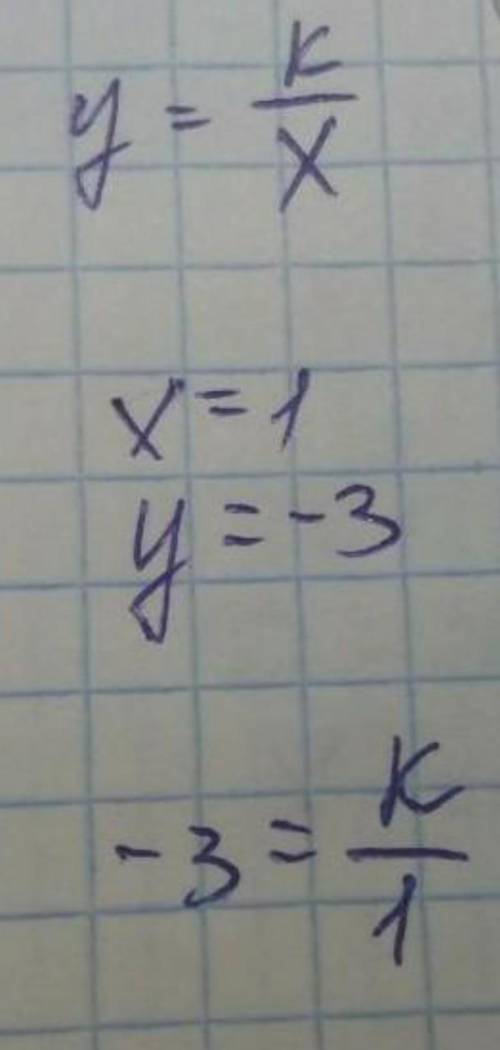 y = k/x
x = 1
y = -3
-3 = k/1